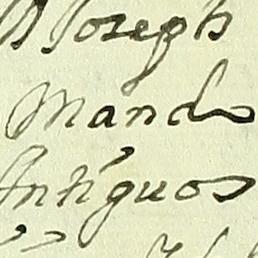 Joseph
Mando
Antiguos